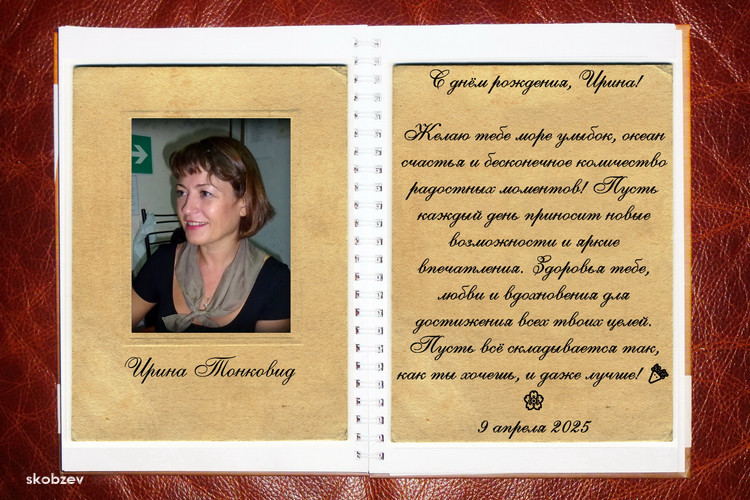 Ирина Тонковид
С днём рождения, Ирина!
Желаю тебе море улыбок, океан
счастья и бесконечное количество
радостных моментов! Пусть
каждый день приносит новые
возможности и яркие
впечатления. Здоровья тебе,
любви и вдохновения для
достижения всех твоих целей.
Пусть всё складывается так,
как ты хочешь, и даже лучше! 🎉
🌸
9 апреля 2025
skobzev